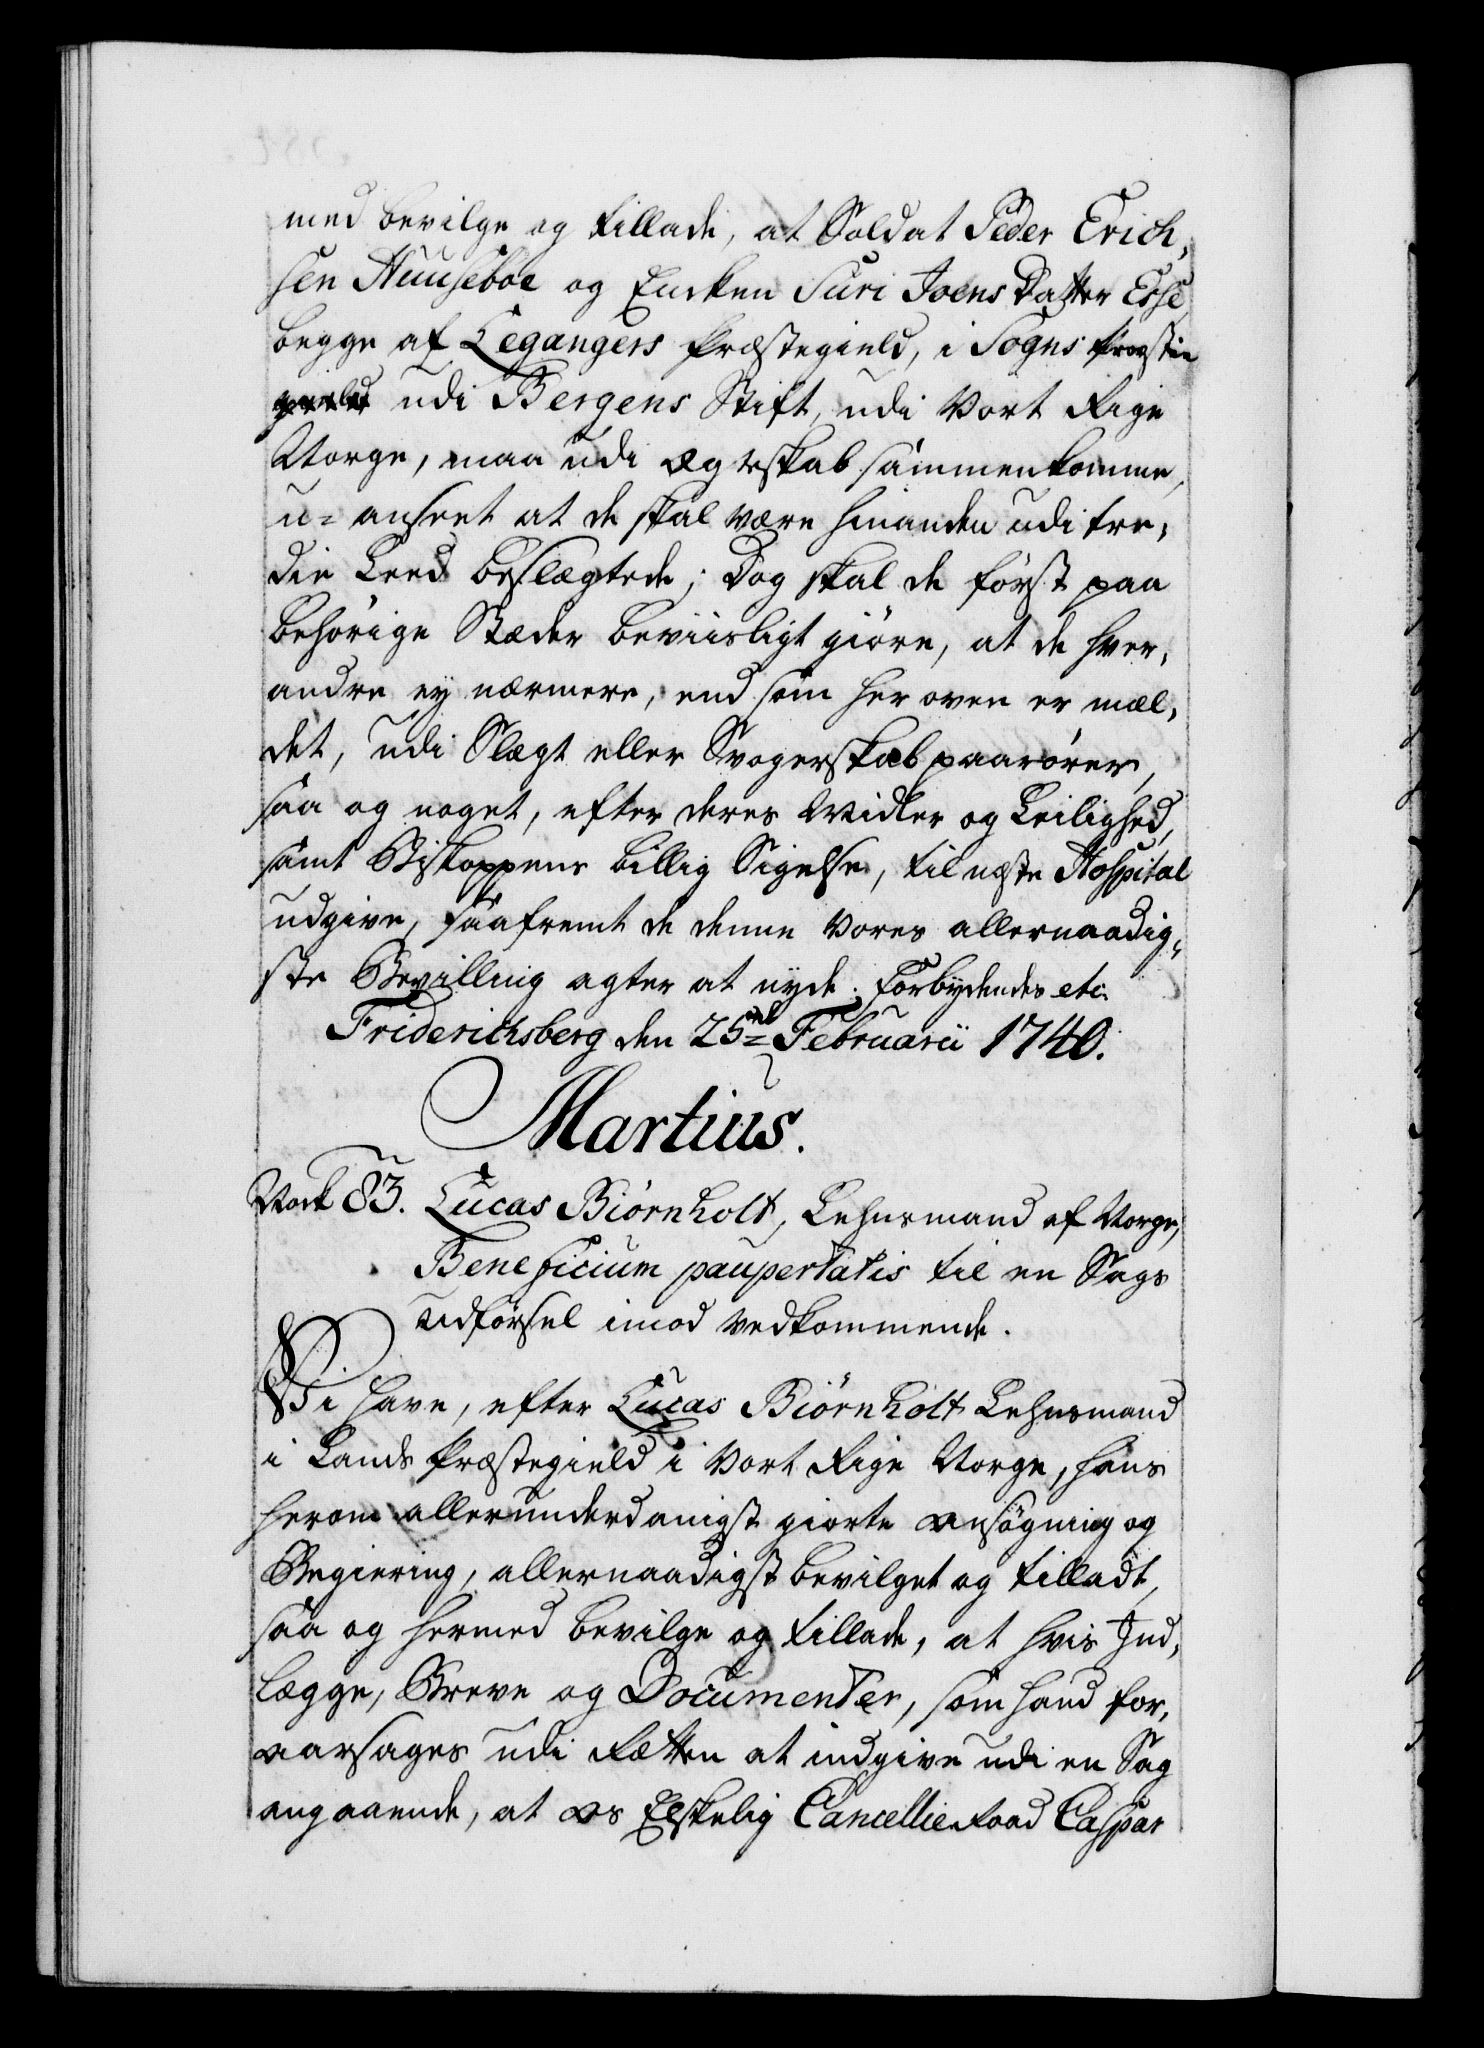 med bevilge og tillade, at Soldat Peder Erich,
sen Huuseboe og Encken Siuri Joens Datter Esse
begge af Leganger Præstegield, i Sogns Provstie
gield udi Bergens Stift, udi Vort Rige
Norge, maa udi Ægteskab sammenkomme,
u= anseet at de skal være hinanden udi tre,
die Leed beslægtede; Dog skal de først paa
behørige Stæder beviisligt giøre, at de hver,
andre ey nærmere, end som her oven er mæl,
det, udi Slægt eller Svogerskab paarører,
saa og noget, efter deres Midler og Leilighed,
samt Biskoppens billig Sigelse, til næste Hospital
udgive, saafremt de denne Vores allernaadig,
ste Bevilling agter at nyde. Forbydendes etc.
Friderichsberg den 25de Februarii 1740.
Martius.
83. Lucas Biørnholt, Lehnsmand af Norge,
Beneficium paupertatis til en Sags
Udførsel imod vedkommende.
Vi have, efter Lucas Biørnholt Lehnsmand
i Lands Præstegield i Vort Rige Norge, hans
herom allerunderdanigst giorte ansøgning og
Begiering, allernaadigst bevilget og tilladt,
saa og hermed bevilge og tillade, at hvis Ind,
lægge, Breve og Documenter, som hand for,
aarsages udi Rætten at indgive udi en Sag
angaaende, at os Elskelig Cancellie Raad Caspar